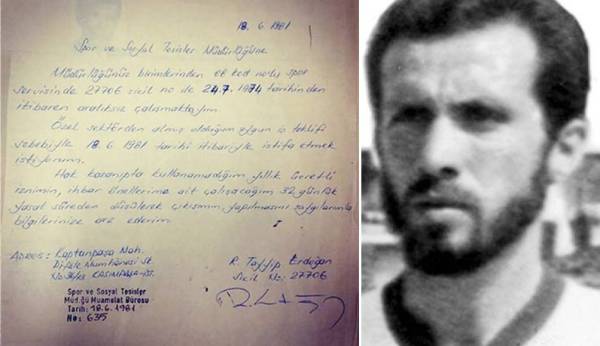 18.6.1981
Spor ve Sosyal Tesisler Müdürlüğüne
Müdürlüğünüz birimlerinden ek kod nolu spor
servisinde 27706 sicil no ile 24.7.1974 tarihinden
itibaren aralıksız çalışmaktayım.
Özel sektörden almış olduğum uygun iş teklifi
sebebiyle 18.6.1981 tarihi itibariyle istifa etmek
istiyorum.
Hak kazanıpta kullanamadığım yıllık ücretli
iznimin, ihbar önellerime ait çalışacağım 32 günlük
yasal süreden düşülerek çıkışımın yapılmasını saygılarımla
bilgilerinize arz ederim.
ADRES: Kaptanpaşa Mah.
No: KASIMPAŞA-İST.
R. Tayyip Erdoğan
Sicil No: 27706
Spor ve Sosyal Tesisler
Müd.ğü Muamelat Bürosu
Tarih: 18.6.1981
No: 635